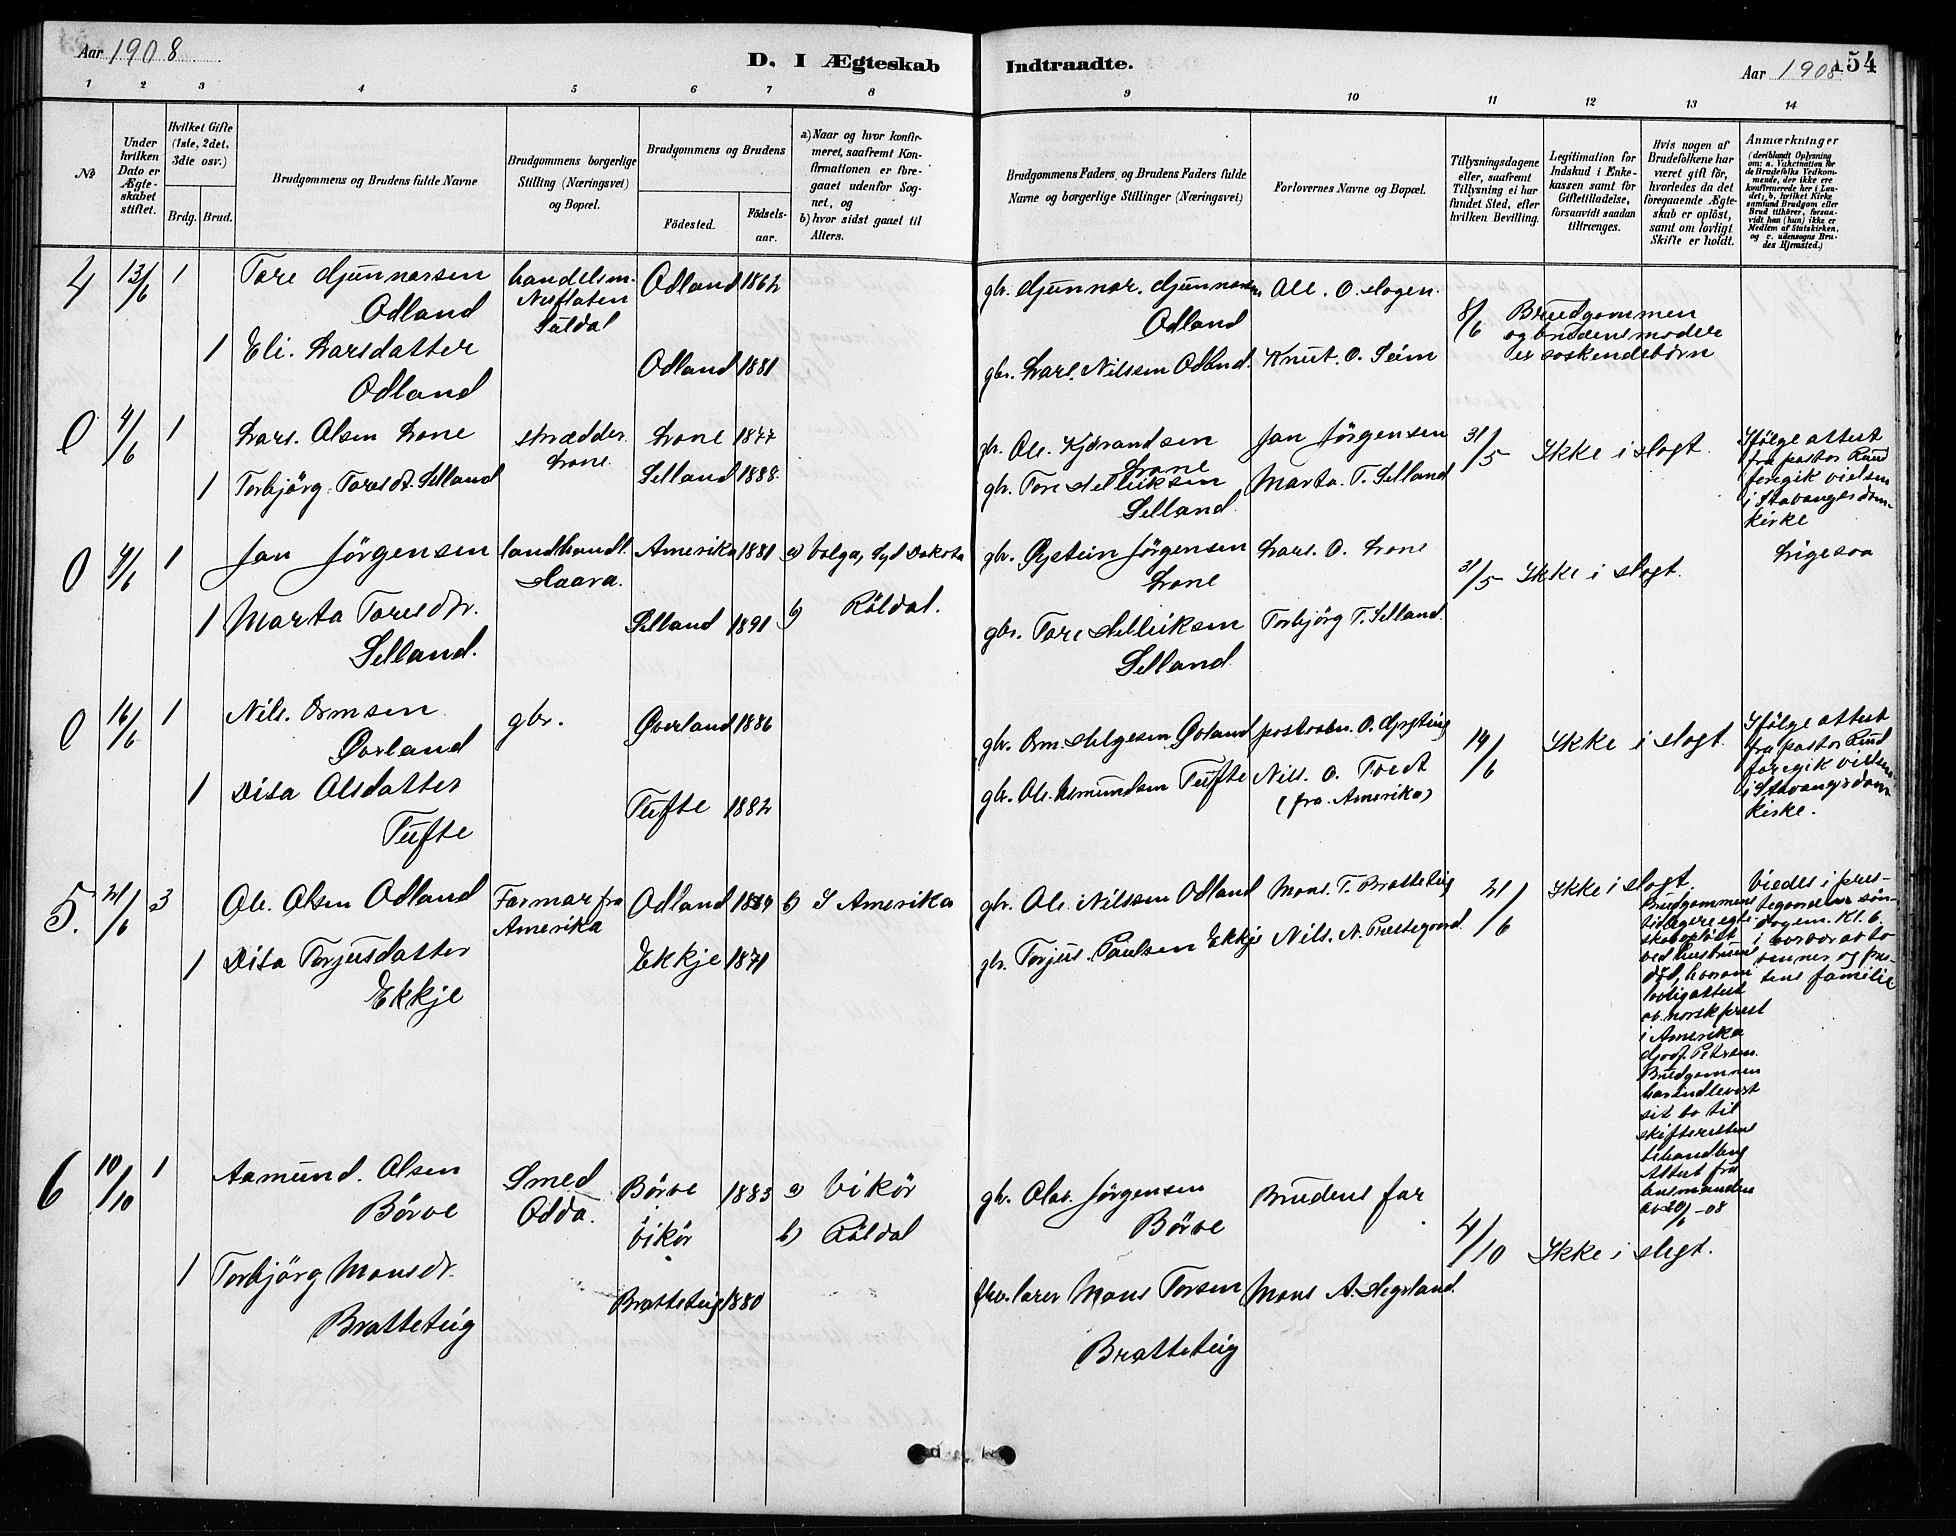 Aar 1908
D. I Ægteskab Indtraadte.
Aar 1908
154
1 2 3 4 5 6 7 8 9 10 11 12 13 14
No
Under
hvilken
Dato er
Ægte-
skabet
stiftet.
Hvilket Gifte
(1ste, 2det,
3die osv.)
Brdg. Brud.
Brudgommens og Brudens fulde Navne
Brudgommens borgerlige
Stilling (Næringsvei)
og Bopæl.
Brudgommens og Brudens
Fødested.
Fødsels-
aar.
a) Naar og hvor konfir-
meret, saafremt Kon-
firmationen er fore-
gaaet udenfor Sog-
net, og
b) hvor sidst gaaet til
Alters.
Brudgommens Faders og Brudens Faders fulde
Navne og borgerlige Stillinger (Næringsvei)
Forlovernes Navne og Bopæl.
Tillysningsdagene
eller, saafremt
Tillysning ei har
fundet Sted, efter
hvilken Bevilling.
Legitimation for
Indskud i Enke-
kassen samt for
Giftetilladelse,
forsaavidt saadan
tiltrænges.
Hvis nogen af
Brudefolkene har
været gift før,
hvorledes da det
foregaaende Ægte-
skab er opløst,
samt om lovligt
Skifte er holdt.
Anmærkninger
(deriblandt Oplysning
om: a. Vakcination for
de Brudefolks Vedkom-
mende, der ikke ere
konfirmerede her i Lan-
det; b. hvilket Kirke
samfund Brudgom eller
Brud tilhører, forsaa-
vidt han (hun) ikke er
Medlem af Statskirken,
og c. udensogns Bru-
des Hjemsted.)
4 13/6 1 Tore Gunnarsen
Odland
handelsm.
Nesflaten
Suldal
Odland 1862
gbr. Gunnar Gunnarsen
Odland
Ole. O. Hagen.
8/6
Brudgommen
og brudens moder
er søskendebørn
1 Eli. Larsdatter
Odland
Odland 1881
gbr. Lars. Nilssen Odland.
Knut. O. Seim
0 4/6 1 Lars. Olsen Lone
skrædder
Lone
Lone 1877
gbr. Ole. Kjørandsen
Lone
Jan Jørgensen
31/5 Ikke i slegt.
Ifølge attest
fra pastor Rund
foregik vielsen
i Stavanger dom-
kirke
1 Torbjörg Toresdt. Selland
Selland 1888.
gbr. Tore Helliksen
Selland
Marta. T. Selland
0 4/6 1 Jan Jörgensen
landhandl.
Haara.
Amerika 1881
a) Volga, Syd Dakota
b) Röldal.
gbr. Øystein Jørgensen
Lone
Lars. O. Lone
31/5 Ikke i slegt.
Ligesaa
1 Marta Toresdtr.
Selland.
Selland 1891
gbr. Tore Helliksen
Selland
Torbjörg T. Selland.
0 16/6 1 Nils. Ormsen
Øverland
gbr.
Øverland 1886
gbr. Orm. Helgesen Øverland
14/6 Ikke i slegt.
Ifølge attest
fra pastor Rund
foregik vielsen
i Stavanger dom-
kirke.
1 Disa Olsdatter
Tufte
Tufte 1882
gbr. Ole. Asmundsen Tufte
Nils. O. Tredt
(fra Amerika)
5. 21/6 3 Ole. Olsen Odland
Farmar fra
Amerika
Odland
b) I Amerika
gbr. Ole. Nilssen Odland
Mons. T. Bratteteig
21/6 Ikke i slegt.
Brudgommens
tidligere egte-
skab opløst
ved hustruens
død, hvorom
lovlig attest
av. norsk prest
i Amerika
Petersen.
Brudgommen
har indlevert
sit bo til
skifterettens
behandling
Attest fra
lensmanden
av 20/6 -08
Viedes i pres-
tegaarden søn-
dagen. Kl. 6.
venner og pre-
stens familie
1 Disa Torjusdatter
Ekkje
Ekkje 1871
gbr. Torjus. Paulsen Ekkje
Nils. N. Prestegaard.
6 10/10 1 Aamund. Olsen
Börve
Smed
Odda.
Börve
i
Vikör
1883
a) Vikör
b) Röldal
gbr. Olav. Jörgensen
Börve
Brudens far
4/10 Ikke i slegt.
1 Torbjörg Monsdt.
Bratteteig
Bratteteig 1880
Mons Torsen
Bratteteig
Mons A. Hegrland.